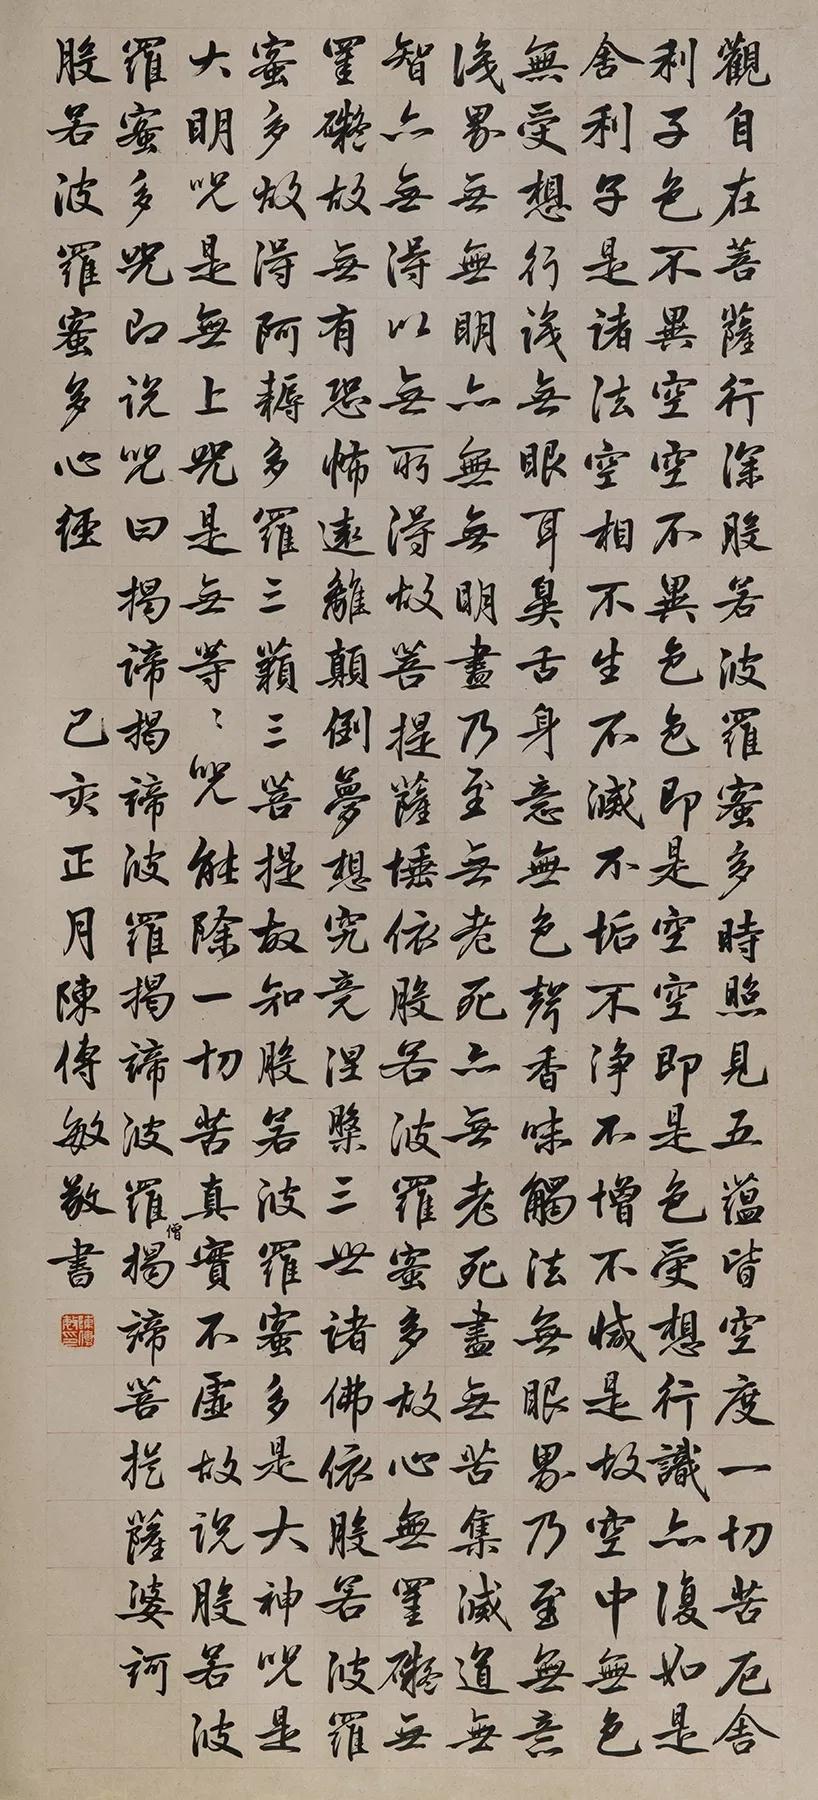 觀自在菩薩行深般若波羅蜜多時照見五蘊皆空度一切苦厄舍
利子色不異空空不異色色即是空空即是色受想行識亦復如是
舍利子是諸法空相不生不滅不垢不淨不增不減是故空中無色
無受想行識無眼耳鼻舌身意無色聲香味觸法無眼界乃至無意
識界無無明亦無無明盡乃至無老死亦無老死盡無苦集滅道無
智亦無得以無所得故菩提薩埵依般若波羅蜜多故心無罣礙無
罣礙故無有恐怖遠離顛倒夢想究竟涅槃三世諸佛依般若波羅
蜜多故得阿耨多羅三藐三菩提故知般若波羅蜜多是大神咒是
大明咒是無上咒是無等〻咒能除一切苦真實不虛故說般若波
羅蜜多咒即說咒曰 揭諦揭諦波羅揭諦波羅僧揭諦菩提薩婆訶
般若波羅蜜多心經 己亥正月陳傳敏敬書
陳傳敏印